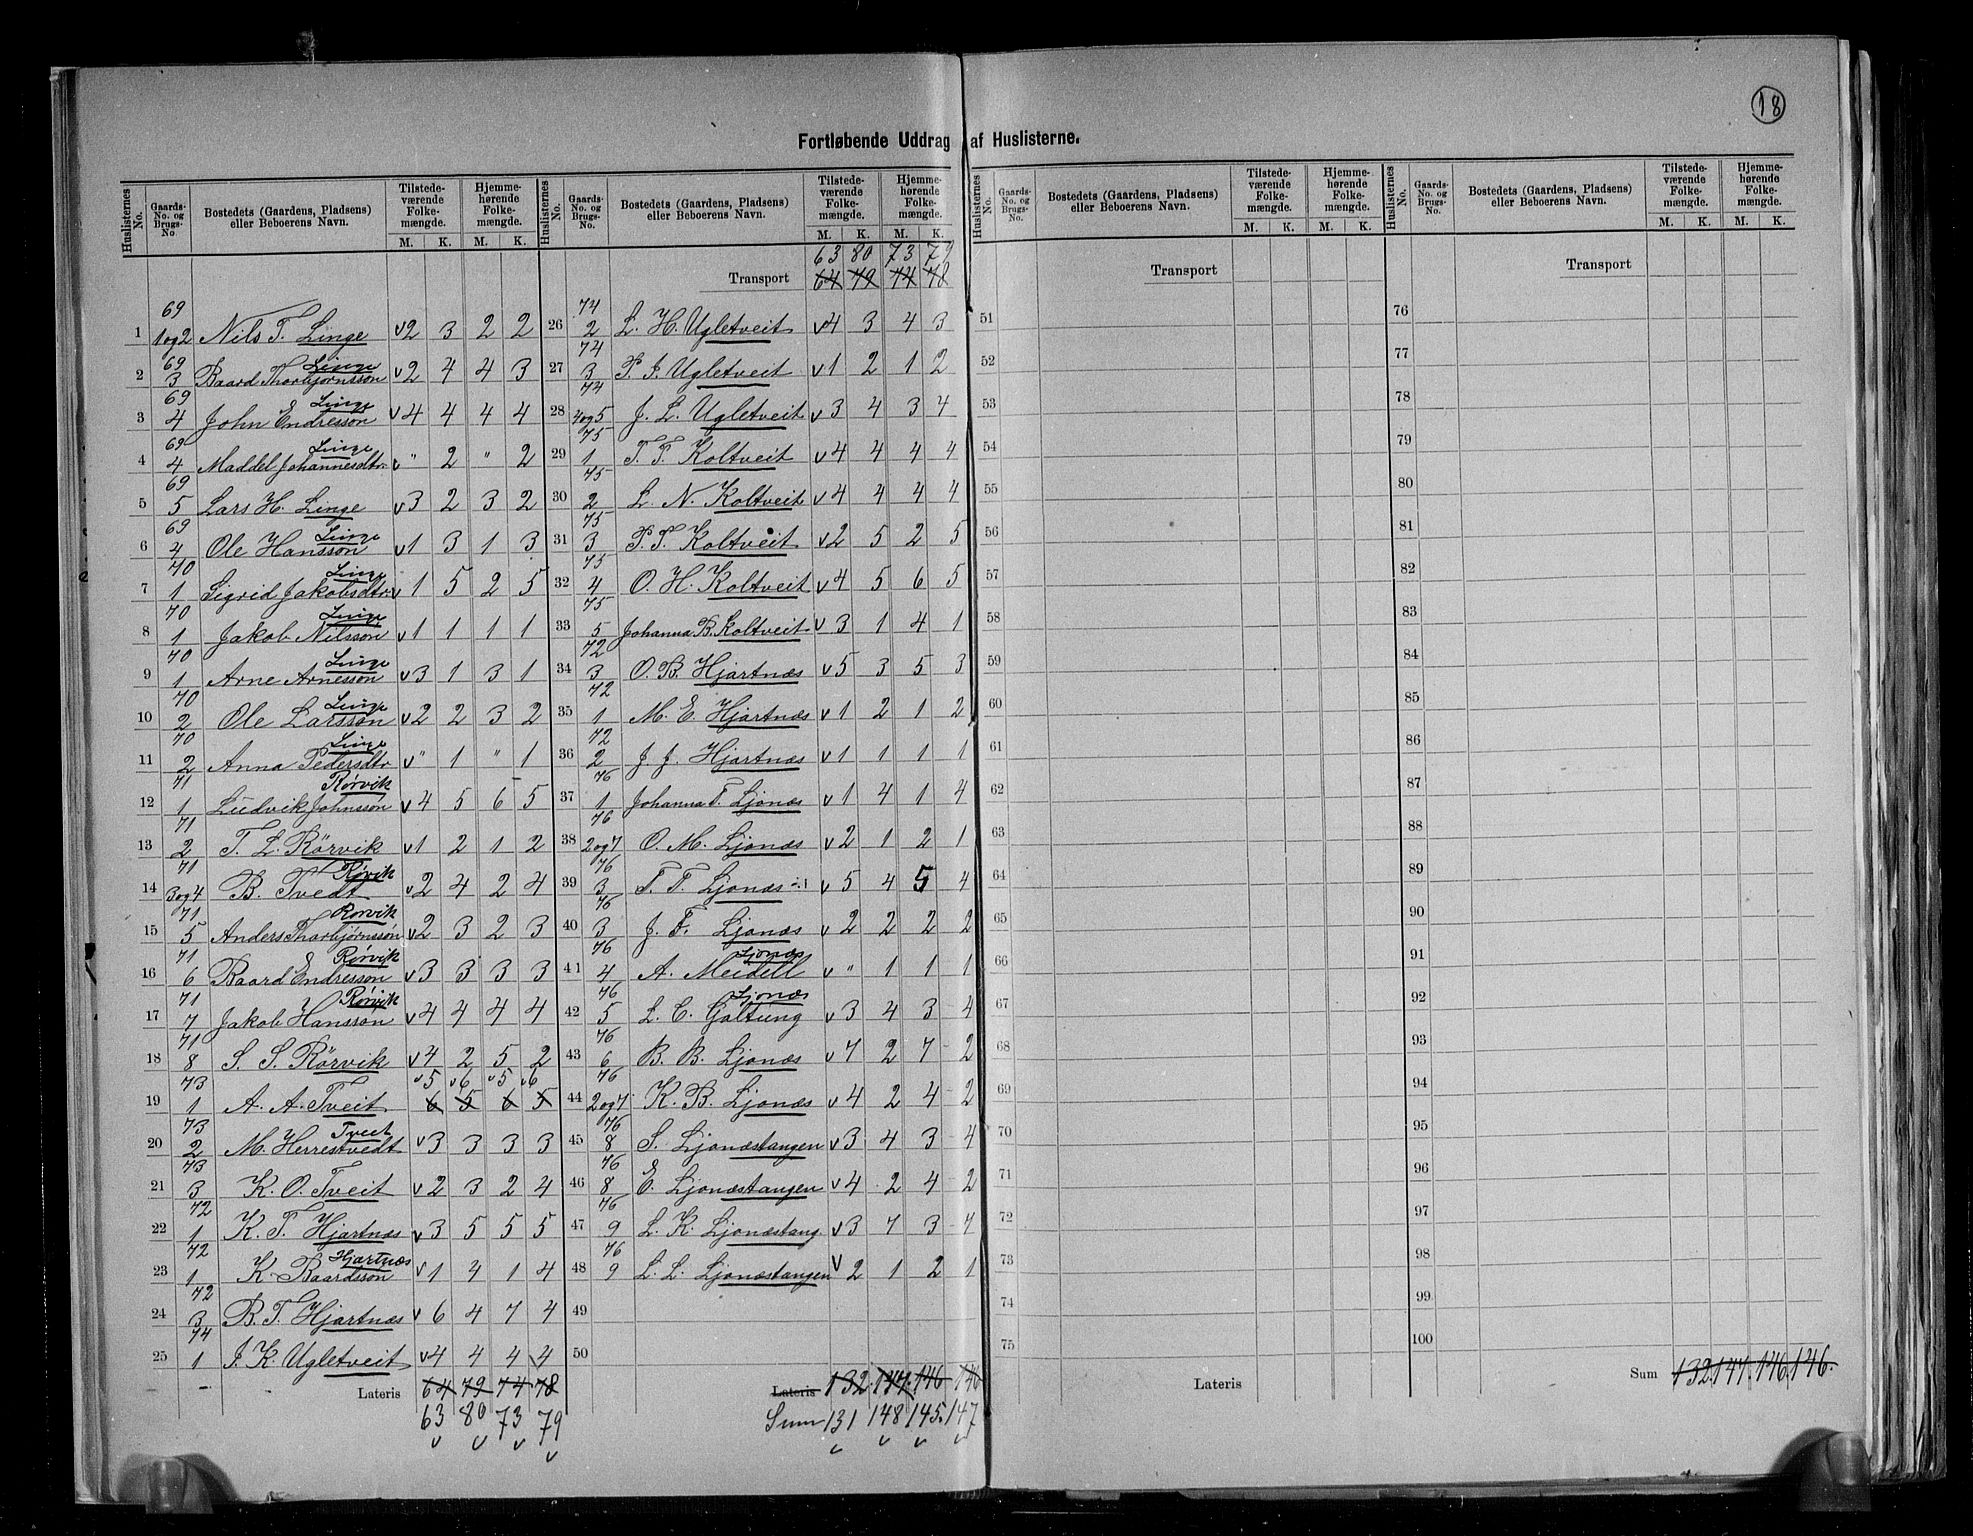 18
Fortløbende Uddrag af Huslisterne.
Huslisternes No. Gaards-No. og Brugs-No. Bostedets (Gaardens, Pladsens) eller Beboerens Navn. Tilstedeværende Folkemængde. M. K. Hjemmehørende Folkemængde. M. K.
1 69 1og2 Nils T. Linge v2 3 2 2
2 69 3 Baard Thorbjørnssøn Linge v2 4 4 3
3 69 4 John Endressøn Linge v4 4 4 4
4 69 4 Maddel Johannesdtr. Linge v " 2 " 2
5 69 5 Lars H. Linge v3 2 3 2
6 69 4 Ole Hanssøn Linge v1 3 1 3
7 70 1 Sigrid Jakobsdtr Linge v1 5 2 5
8 70 1 Jakob Nilssøn Linge v1 1 1 1
9 70 1 Arne Arnessøn Linge v3 1 3 1
10 70 2 Ole Larssøn Linge v2 2 3 2
11 70 2 Anna Pedersdtr Linge v " 1 " 1
12 71 1 Ludvik Johnssøn Rørvik v4 5 6 5
13 71 2 T. L. Rørvik v1 2 1 2
14 71 3og4 B. Tvedt Rørvik v2 4 2 4
15 71 5 Anders Thorbjørnssøn Rørvik v2 3 2 3
16 71 6 Baard Endressøn Rørvik v3 3 3 3
17 71 7 Jakob Hanssøn Rørvik v4 4 4 4
18 71 8 S. S. Rørvik v4 2 5 2
v5 v6 v5 v6
19 73 1 A. A. Tveit 6 5 6 5
20 73 2 M. Herrestvedt Tveit v3 3 3 3
21 73 3 K. O. Tveit v2 3 2 4
22 72 1 K. T. Hjartnæs v3 5 5 5
23 72 1 K. Baardssøn Hjartnæs v1 4 1 4
24 72 3 B. T. Hjartnæs v6 4 7 4
25 74 1 J. K. Ugletveit v4 4 4 4
Lateris 64 79 74 78
63 80 73 79
Huslisternes No. Gaards-No. og Brugs-No. Bostedets (Gaardens, Pladsens) eller Beboerens Navn. Tilstedeværende Folkemængde. M. K. Hjemmehørende Folkemængde. M. K.
63 80 73 79
Transport 64 79 74 78
26 74 2 L. H. Ugletveit v4 3 4 3
27 74 3 P. J. Ugletveit v1 2 1 2
28 74 4og5 J. L. Ugletveit v3 4 3 4
29 75 1 T. T. Koltveit v4 4 4 4
30 75 2 L. N. Koltveit v4 4 4 4
31 75 3 P. T. Koltveit v2 5 2 5
32 75 4 O. H. Koltveit v4 5 6 5
33 75 5 Johanna B. Koltveit v3 1 4 1
34 72 3 O. B. Hjartnæs v5 3 5 3
35 72 1 M. E. Hjartnæs v1 2 1 2
36 72 2 J. J. Hjartnæs v1 1 1 1
37 76 1 Johanna T. Ljonæs v1 4 1 4
38 76 2og7 O. M. Ljonæs v2 1 2 1
39 76 3 T. T. Ljonæs v5 4 5 4
40 76 3 J. T. Ljonæs v2 2 2 2
41 76 4 A. Meidell Ljonæs v " 1 1 1
42 76 5 L. C. Galtung Ljonæs v3 4 3 4
43 76 6 B. B. Ljonæs v7 2 7 2
44 76 2og7 K. B. Ljonæs v4 2 4 2
45 76 8 S. Ljonæstangen v3 4 3 4
46 76 8 E. Ljonæstangen v4 2 4 2
47 76 9 L. K. Ljonæstang. v3 7 3 7
48 76 9 L. L. Ljonæstangen v2 1 2 1
49
50
Lateris 132. 147. 146 146
Sum 131 148 145. 147
Huslisternes No. Gaards-No. og Brugs-No. Bostedets (Gaardens, Pladsens) eller Beboerens Navn. Tilstedeværende Folkemængde. M. K. Hjemmehørende Folkemængde. M. K.
Transport
51
52
53
54
55
56
57
58
59
60
61
62
63
64
65
66
67
68
69
70
71
72
73
74
75
Lateris
Huslisternes No. Gaards-No. og Brugs-No. Bostedets (Gaardens, Pladsens) eller Beboerens Navn. Tilstedeværende Folkemængde. M. K. Hjemmehørende Folkemængde. M. K.
Transport
76
77
78
79
80
81
82
83
84
85
86
87
88
89
90
91
92
93
94
95
96
97
98
99
100
Sum 132. 147. 146. 146.